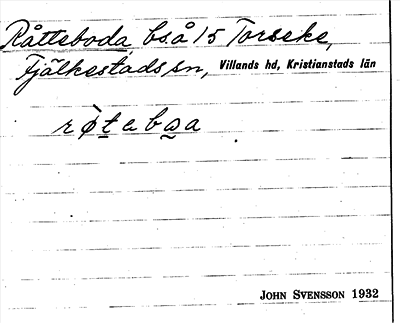 Råtteboda, bså 15 Torseke,
Fjälkestads sn, Villands hd, Kristianstads län
rø̀tabaa
JOHN SVENSSON 1932